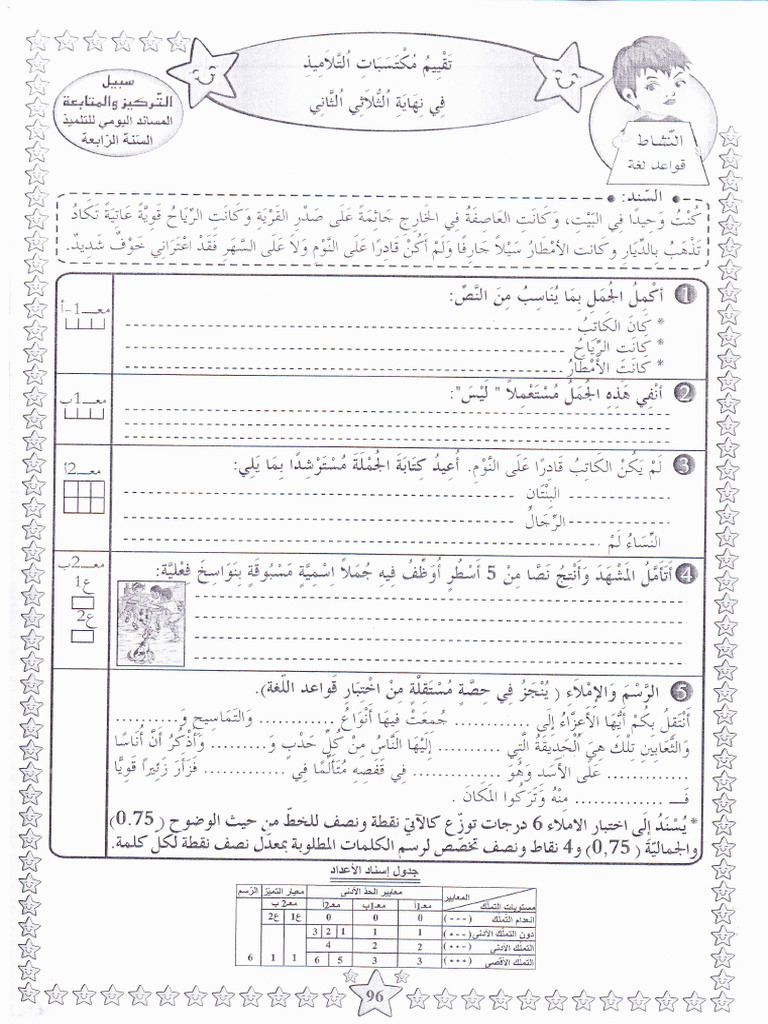 تَقْيِيمُ مُكْتَسَبَاتِ التَّلَامِيذِ
فِي نِهَايَةِ الثُّلَاثِي الثَّانِي
سبيل
التّركيز والمتابعة
المساند اليومي للتلميذ
السنة الرّابعة
النّشاط
قواعد لغة
السّند:
كُنْتُ وَحِيدًا فِي البَيْتِ، وَكَانَتِ العَاصِفَةُ فِي الخَارِجِ جَاثِمَةً عَلَى صَدْرِ القَرْيَةِ وَكَانَتِ الرِّيَاحُ قَوِيَّةً عَاتِيَةً تَكَادُ
تَذْهَبُ بِالدِّيَارِ وكانت الأمْطَارُ سَيْلاً جَارِفًا وَلَمْ أَكُنْ قَادِرًا عَلَى النَّوْمِ وَلاَ عَلَى السَّهَرِ فَقَدْ اعْتَرَانِي خَوْفٌ شَدِيدٌ.
1 أكْمِلُ الجُمَلِ بِمَا يُنَاسِبُ مِنَ النَّصِّ:
معـ1-أ
* كَانَ الكَاتِبُ
* كَانَت الرِّيَاحُ
* كَانَتَ الأَمْطَارُ
2 أنْفِي هَذِهِ الجُمَلُ مُسْتَعْمِلاً " لَيْسَ":
معـ1ب
3 لَمْ يَكُنْ الكَاتِبُ قَادِرًا عَلَى النَّوْمِ. أُعِيدُ كِتَابَةَ الجُمْلَةَ مُسْتَرْشِدًا بِمَا يَلِي:
معـ2أ
البِنْتَانِ
الرِّجَالُ
النِّسَاءُ لَمْ
4 أَتَأَمَّلُ المَشْهَدَ وَأُنْتِجُ نَصًّا مِنْ 5 أَسْطُرٍ أُوَظِّفُ فِيهِ جُمَلاً اِسْمِيَّةٍ مَسْبُوقَةٍ بِنَوَاسِخَ فِعْلِيَّة:
معـ2ب
ع1
ع2
5 الرَّسْمَ وَالإِمْلَاء ( يُنْجَزُ فِي حِصَّةٍ مُسْتَقِلَّةٍ مِنْ اخْتِبَارِ قَوَاعِد اللّغة).
أَنْتَقِلُ بِكُمْ أَيُّهَا الأَعِزَّاءُ إِلى ............ جُمِعَتْ فِيهَا أَنْوَاعُ ............ وَالتَّمَاسِيحِ وَ..........
وَالثَّعَابِينِ تِلْكَ هِيَ الْحَدِيقَةُ الَّتِي .......... إِلَيْهَا النَّاسُ مِنْ كُلِّ حَدْبٍ وَ.......... وَأَذْكُرُ أَنَّ أُنَاسًا
............ عَلَى الأَسَد وَهُوَ ............ فِي قَفَصِهِ مُتَأَلِّمًا فِي ............ فَزَأَرَ زَئِيرًا قَوِيًّا
فَـ ............ مِنْهُ وَتَرَكُوا المَكَانَ .
* يُسْنَدُ إلَى اختبار الاملاء 6 درجات توزّع كالآتي نقطة ونصف للخطّ من حيث الوضوح ( 0.75)
والجماليّة ( 0,75) و4 نقاط ونصف تخصّص لرسم الكلمات المطلوبة بمعدّل نصف نقطة لكل كلمة.
جدول إسناد الأعداد
المعايير معايير الحدّ الأدنى معيار التميّز الرّسم
مستويات التملّك معـ1أ معـ1ب معـ2أ معـ2 ب
ع1 ع2
انعدام التملّك (---) 0 0 0
دون التملّك الأدنى (+--) 1 1 1 2 3
التملّك الأدنى (++-) 2 2 4
التملّك الأقصى (+++) 3 3 5 6 1 1 6
96